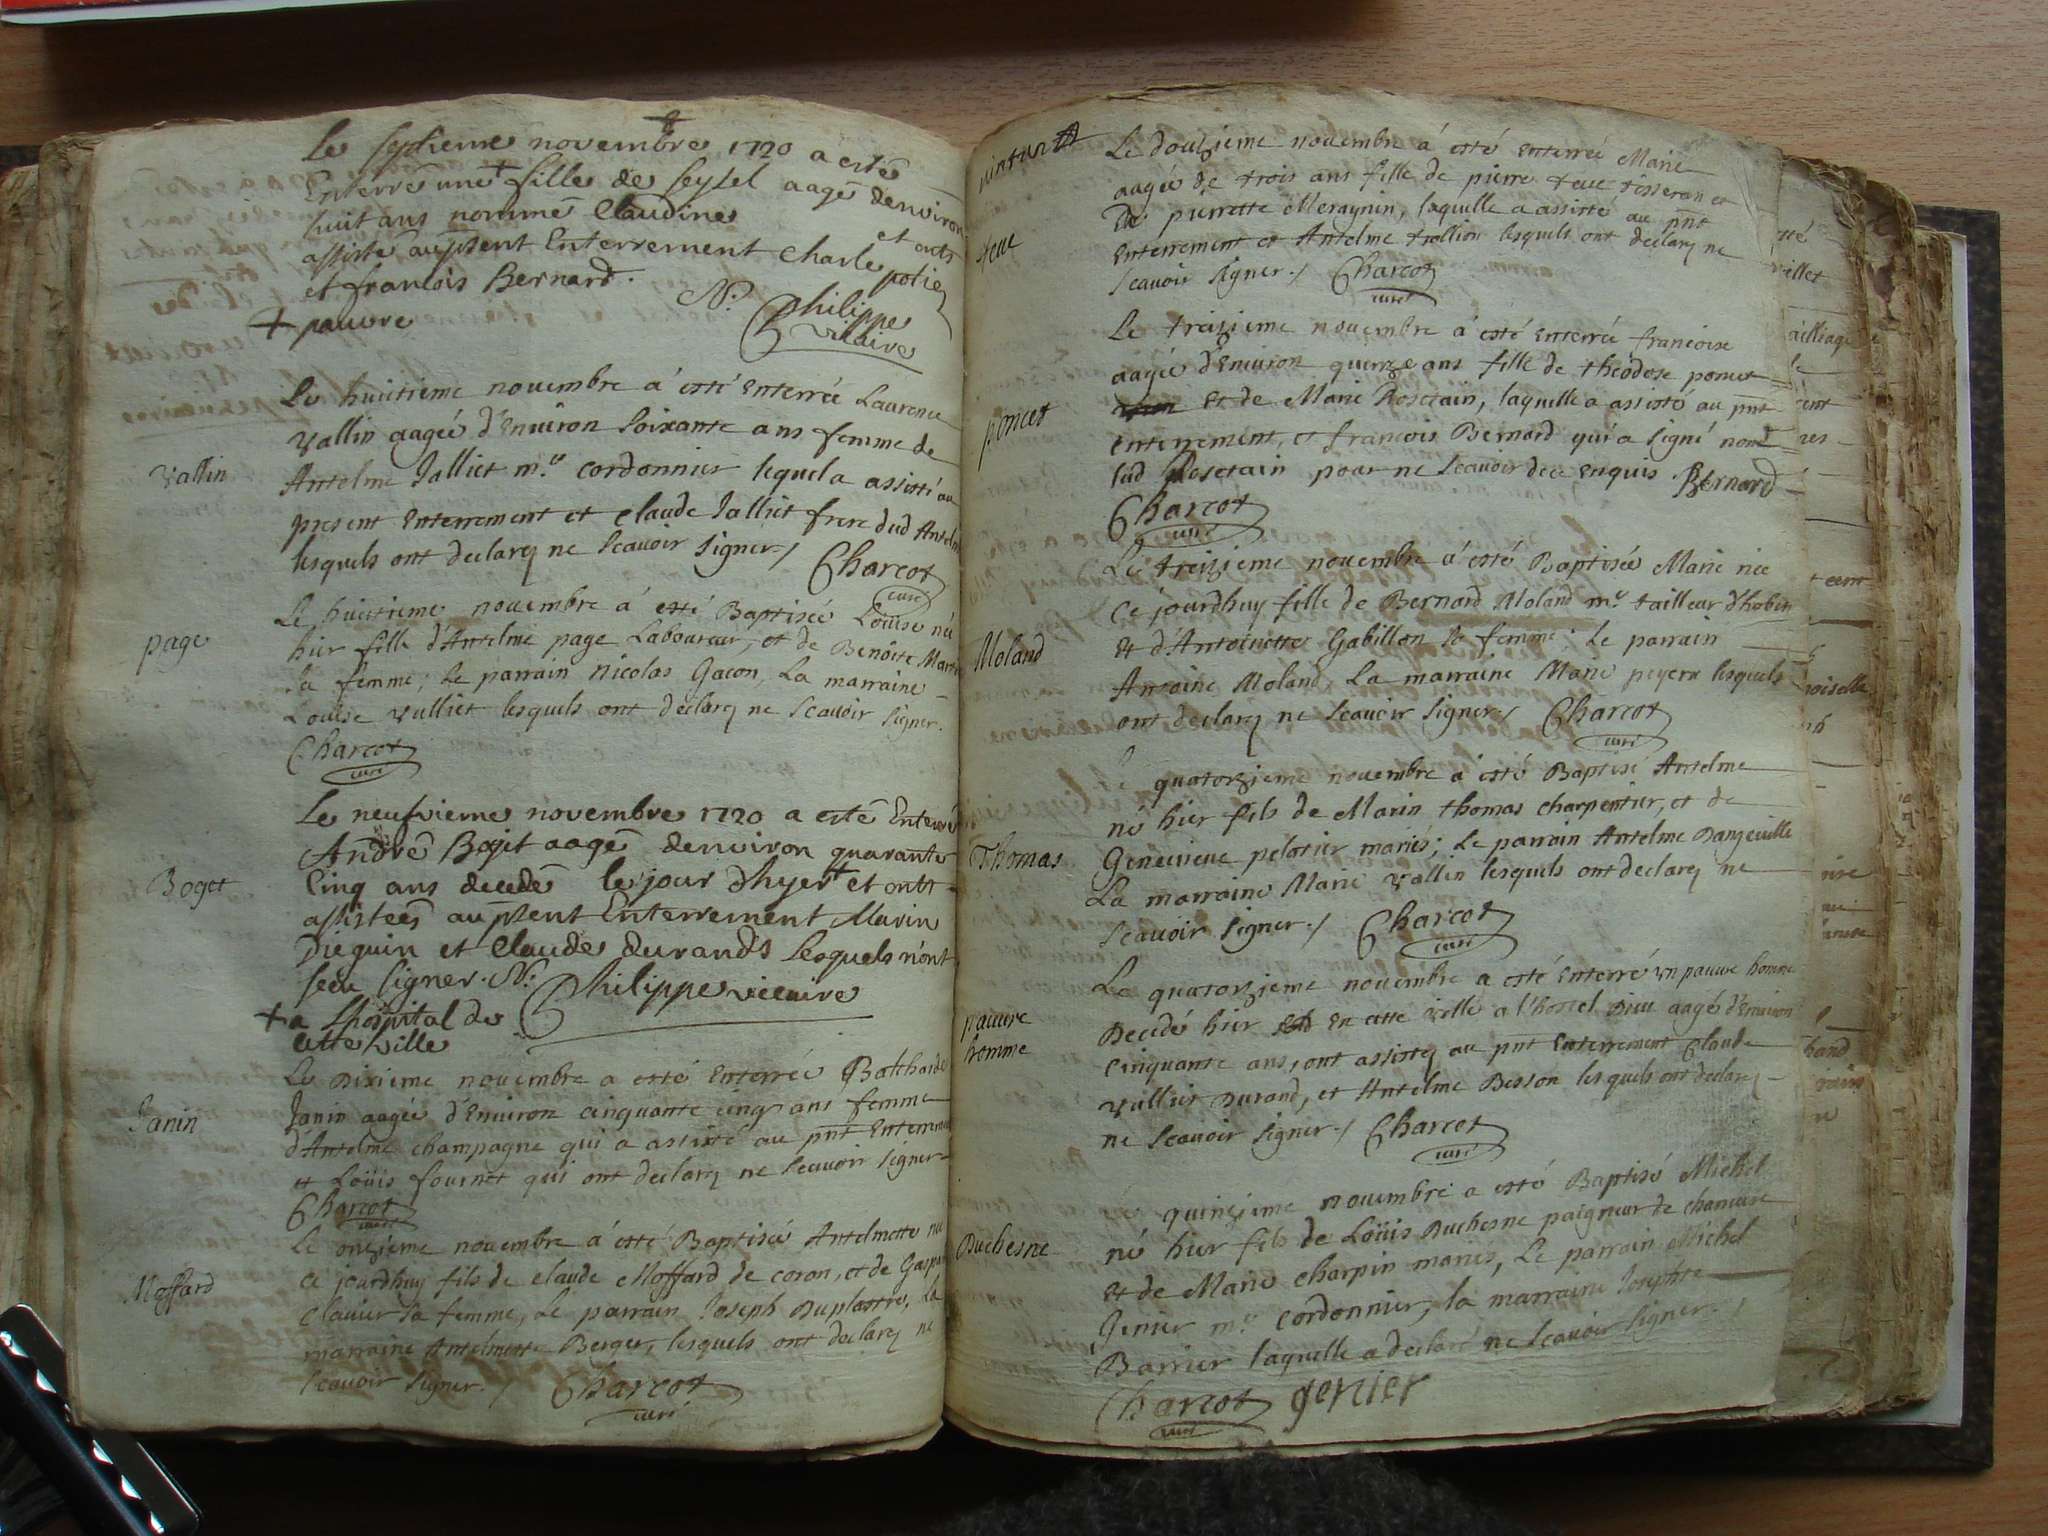 Le septieme novembre 1720 a esté
Enterré une + fille de seysel aagé denviron
huit ans nommé Claudine et onts
assisté au pñent Enterrement Charle potier
et francois Bernard.
N. Philippe
vicaire
+ pauvre
Vallin
Le huictieme nouembre a esté Enterrée Laurence
Vallin aagée d'Enuiron soixante ans femme de
Antelme Jalliet m.e cordonnier lequel a assisté au
present Enterrement et Claude Jalliet frere dud
lesquels ont declaréz ne Scauoir signer /
Charcot
curé
page
Le huictieme nouembre a esté Baptisée Louise née
hier fille d'Antelme page Laboureur, et de Benoite
sa femme; Le parrain Nicolas Gacon, La marraine
Louise Vulliet lesquels ont declaréz ne Scauoir signer.
Charcot
curé
Boget
Le neufvieme novembre 1720 a esté Enterré
André Bojet aagé denviron quarante
Cinq ans decedé le jour d'hyer + et ont
assisteés au pñent Enterrement Marin
Dieguin et Claude durands Lesquels n'ont
sceu signer. N. Philippe viccaire
+ a Lhopital de
cette ville
Janin
Le Dixieme nouembre a esté Enterrée
Janin aagée d'Enuiron cinquante cinq ans femme
d'Antelme champagne qui a assisté au pnt
et Loüis fournet qui ont declaréz ne Scauoir signer
Charcot
curé
Moffard
Le onzieme nouembre á esté Baptisée Antelmette née
ce jourdhuy fils de claude Moffard de coron, et de
Clauier sa femme, Le parrain Joseph Duplastre, La
marraine Antelmette Berger, lesquels ont declaréz ne
Scauoir signer. /
Charcot
curé
teue
Le douzieme nouembre á esté Enterrée Marie
aagée de trois ans fille de pierre teue tisseran et
de pierrette Meraynin, laquelle a assisté au pnt
Enterrement et Antelme trollion lesquels ont declaréz ne
Scauoir signer. / Charcot
curé
poncet
Le treizieme nouembre á esté Enterrée francoise
aagée d'Enuiron quinze ans fille de théodose poncet
et de Marie Rosetain, laquelle a assisté au pnt
enterrement, et francois Bernard qui a signé non
lad Rosetain pour ne Scauoir de ce enquis. Bernard
Charcot
curé
Moland
Le treizieme nouembre á esté Baptisée Marie née
Ce jourdhuy fille de Bernard Moland m.e tailleur d'habits
et d'Antoinette Gabillon sa femme; Le parrain
Antoine Moland, La marraine Marie lesquels
ont declaréz ne Scauoir signer. / Charcot
curé
Thomas
quatorzieme nouembre a esté Baptisé Antelme
né hier fils de Marin thomas charpentier, et de
Geneuieue pelotier mariés; Le parrain Antelme Dangeuille
La marraine Marie Vallin lesquels ont declaréz ne
Scauoir signer. / Charcot
curé
pauvre
homme
Le quatorzieme nouembre a esté Enterré vn pauure homme
Decedé hier En cette ville a l'hostel Dieu aagé d'Enuiron
cinquante ans, ont assistéz au pnt Enterrement Claude
Vullier Durand, et Antelme Besson lesquels ont declaréz
ne Scauoir signer. / Charcot
curé
Duchesne
quinzieme nouembre a esté Baptisé Michel
né hier fils de Loüis Duchesne paigneur de chanure
et de Marie charpin mariés, Le parrain Michel
Genier m.e cordonnier, la marraine Josephte
Barrier laquelle a declaré ne Scauoir signer. /
Charcot genier
curé